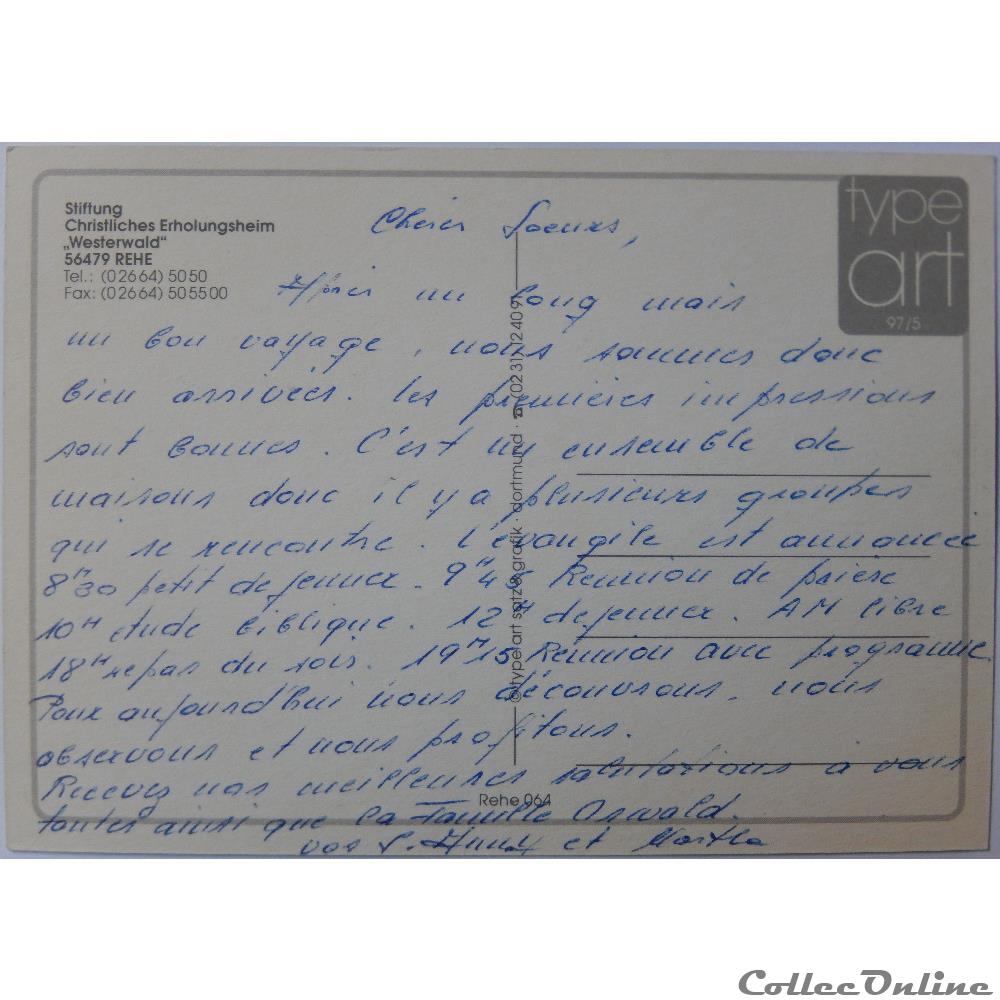 Stiftung
Christliches Erholungsheim
„Westerwald"
56479 REHE
Tel.: (02664) 5050
Fax: (02664) 505500
type
art
97/5
Chères Soeurs,
Après un long mais
un bon voyage, nous sommes donc
bien arrivées. Les premières impressions
sont bonnes. C'est un ensemble de
maisons donc il y a plusieurs groupes
qui se rencontre. L'évangile est annoncée
8H30 petit dejeuner - 9H45 Reunion de paière
10H etude biblique. 12H dejeuner. AM libre
18H repas du soir. 19H15 Reunion avec programme.
Pour aujourd'hui nous découvrons, nous
observons et nous profitons.
Recevez nos meilleures salutations a vous
toutes ainsi que la Famille Oswald.
vos S. et Martha
© type art satz & grafik · dortmund · ☎ (0231) 124091
Rehe 064
CollecOnline